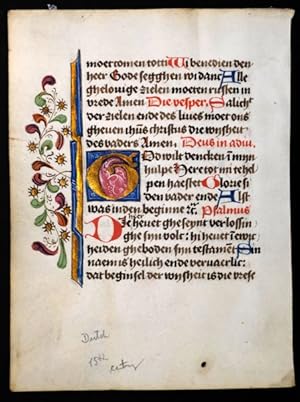 moet comen tot ti Wi benedien den
heer Gode segghen wi danc Alle
ghelovighe zielen moeten rusten in
vrede Amen Die vesper. Salicht
der zielen ende des lives moet ons
gheven ihūs christus die wijsheit
des vaders Amen, Deus in adiu.
God wilt dencken in mijn
hulpe Here tot mi te hel
pen haestet Glorie si
den vader ende Als
was in den beginne Psalmus
hier
Die hevet ghesent verlossin
ghe sijn volc: hi hevet
heiden gheboden sijn testamēt Sin
naem is heilich ende vervaerlic:
dat beginsel der wijsheit is die vrese
Dutch
15th
century